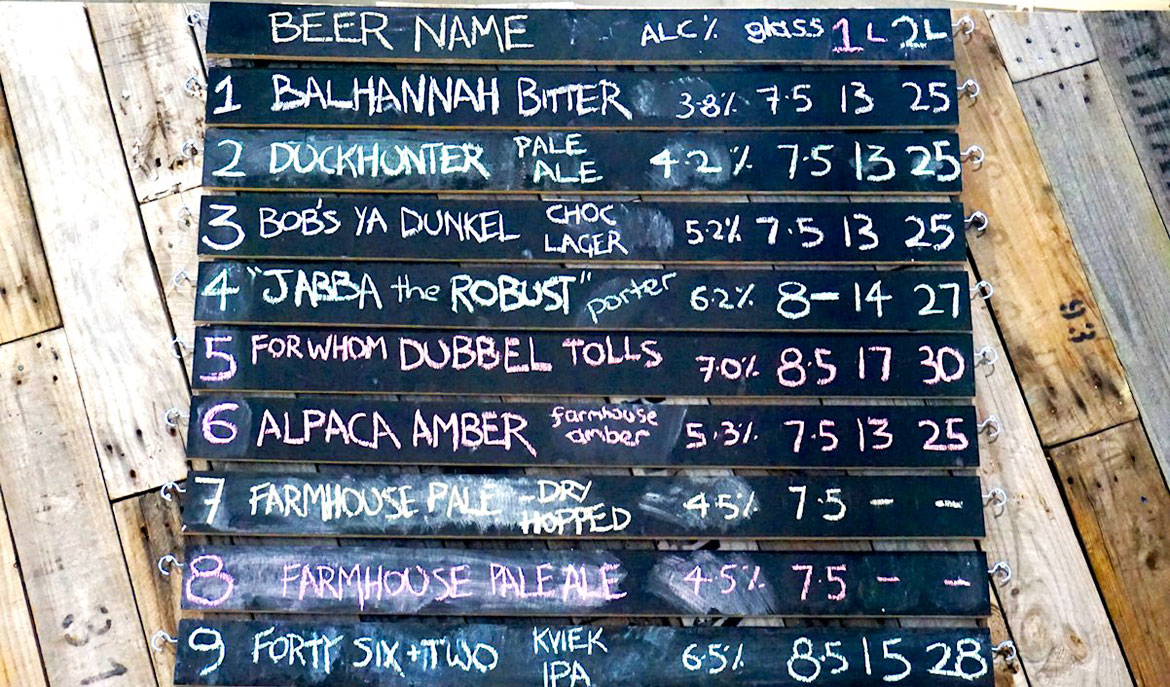 BEER NAME ALC% glass 1L 2L
1 BALHANNAH BITTER 3.8% 7.5 13 25
2 DUCKHUNTER PALE ALE 4.2% 7.5 13 25
3 BOB'S YA DUNKEL CHOC LAGER 5.2% 7.5 13 25
4 "JABBA the ROBUST" porter 6.2% 8- 14 27
5 FOR WHOM DUBBEL TOLLS 7.0% 8.5 17 30
6 ALPACA AMBER farmhouse amber 5.3% 7.5 13 25
7 FARMHOUSE PALE -DRY HOPPED 4.5% 7.5 - -
8 FARMHOUSE PALE ALE 4.5% 7.5 - -
9 FORTY SIX+TWO KVIEK IPA 6.5% 8.5 15 28